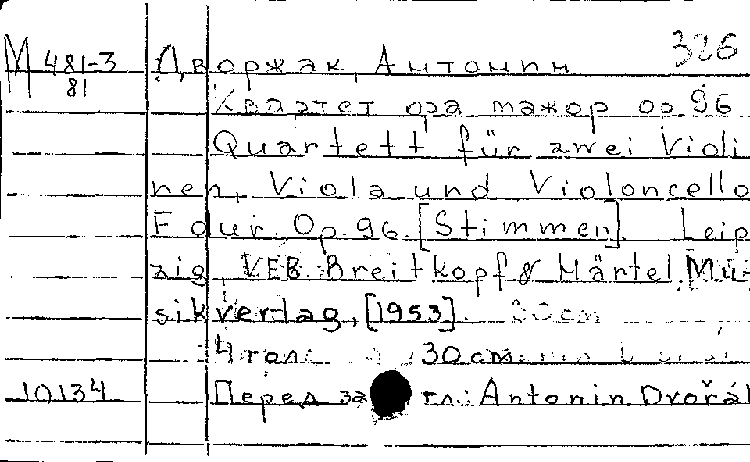 326
М 481-3 Дворжак, Антонин
81
Квартет фа мажор op. 96
Quartett für zwei Violi
nen, Viola und Violoncello
F dur. Op. 96. [Stimmen]. Leip
zig, VEB Breitkopf & Härtel, Mu-
sikverlag, [1953]. 30 cm
4 гол. 30 см.
10134 Перед загл.: Antonin Dvořák